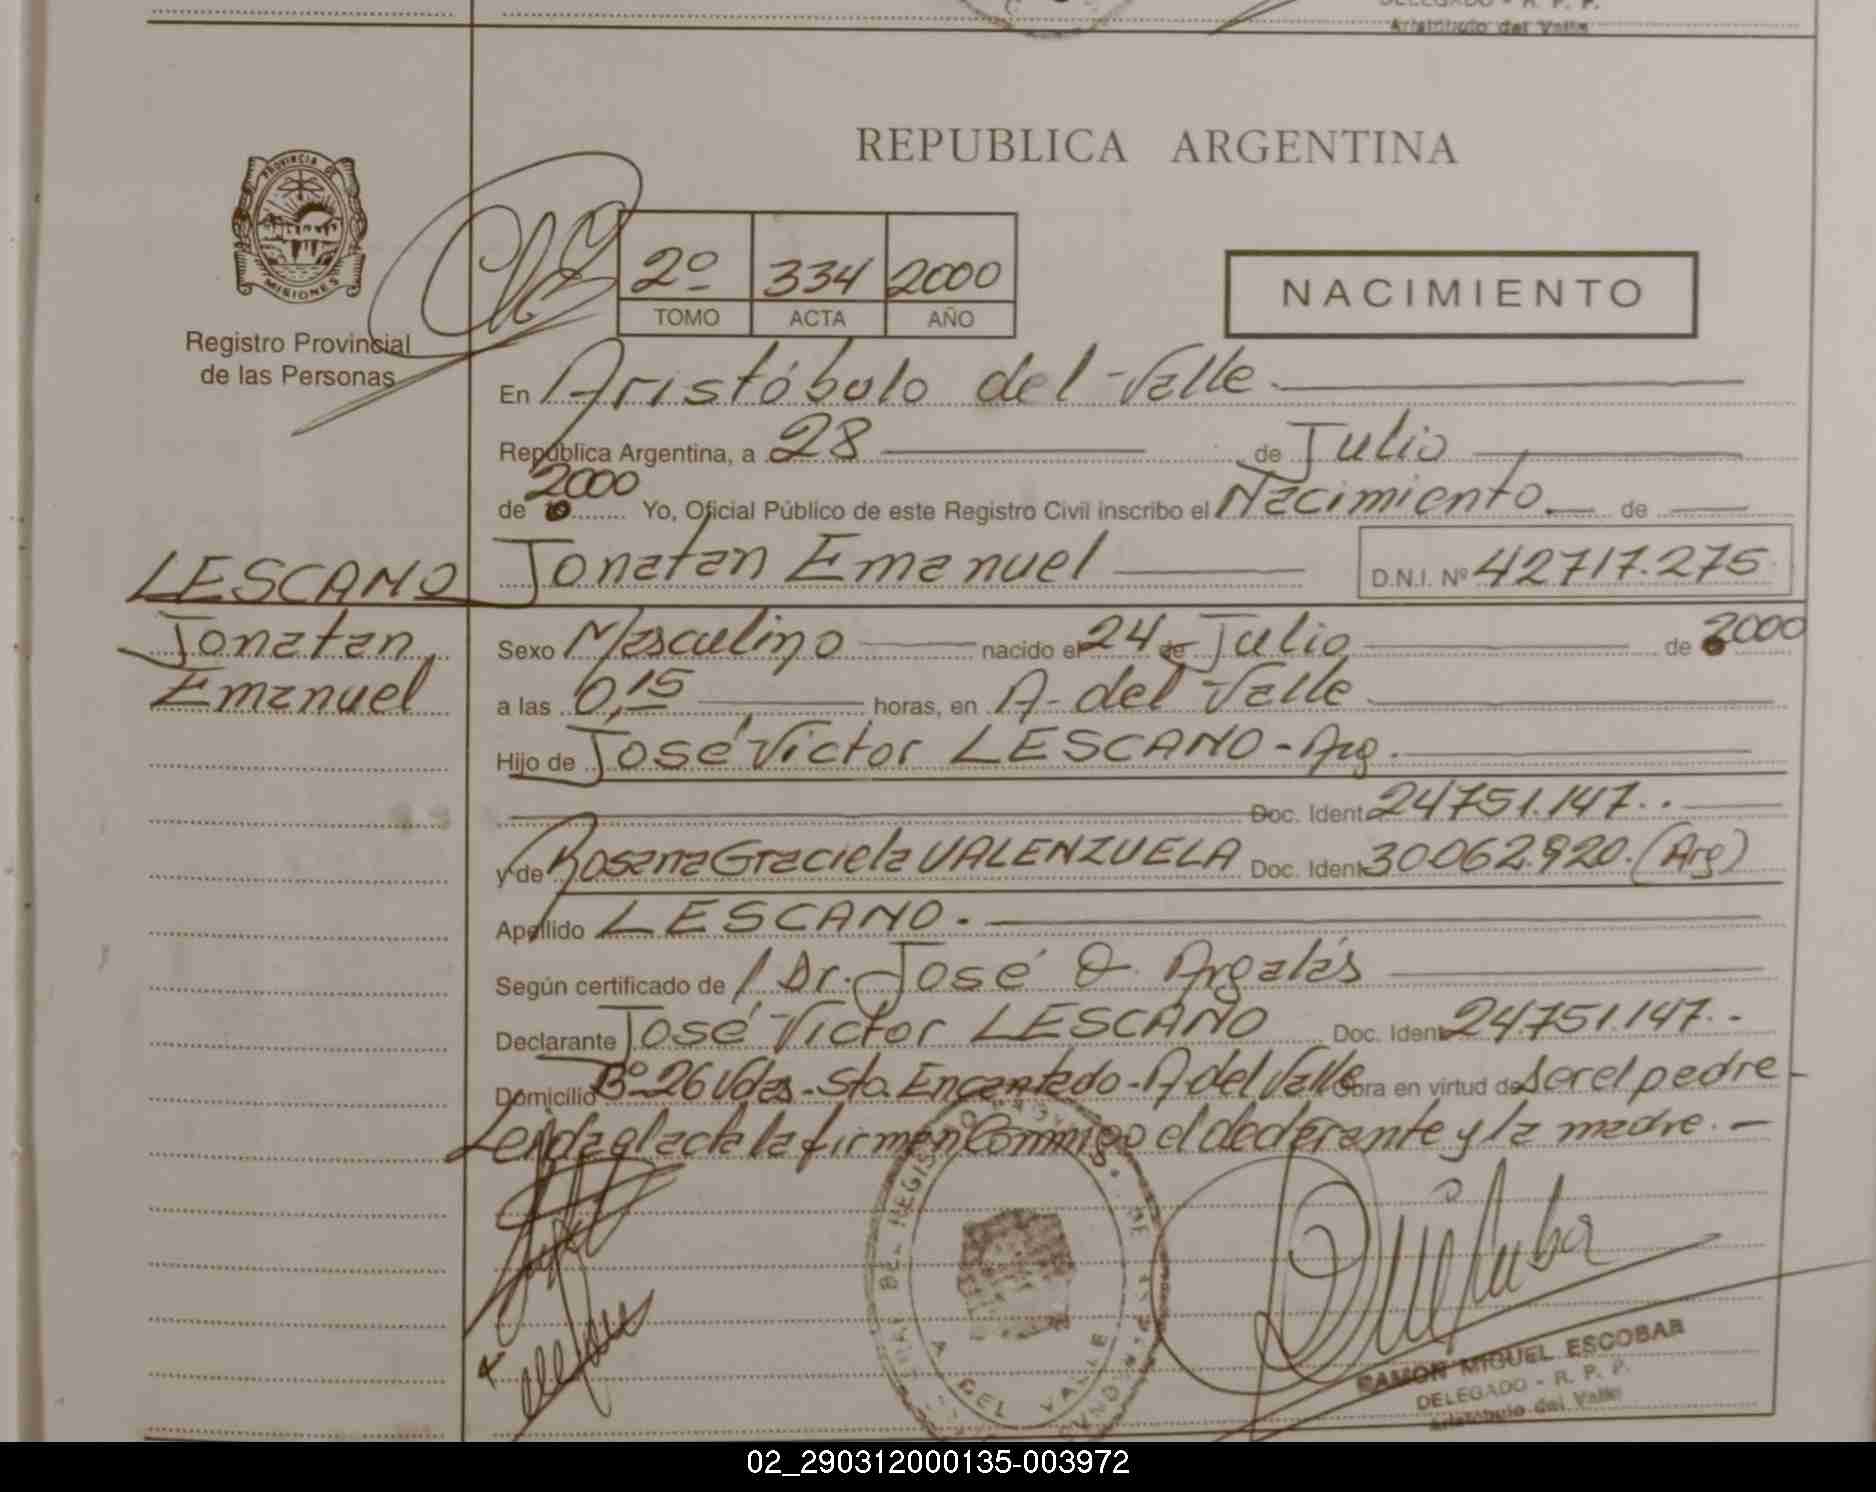 DELEGADO - R. P. P.
Aristóbulo del Valle
REPUBLICA ARGENTINA
PROVINCIA DE
MISIONES
Registro Provincial
de las Personas
2º 334 2000
TOMO ACTA AÑO
NACIMIENTO
En Aristóbulo del Valle.
República Argentina, a 28 de Julio
de 2000 Yo, Oficial Público de este Registro Civil inscribo el Nacimiento. de
Jonatan Emanuel D.N.I. Nº 42717.275
LESCANO
Jonatan
Emanuel
Sexo Masculino nacido el 24 de Julio de 2000
a las 0,15 horas, en A. del Valle
Hijo de José Victor LESCANO - Arg.
Doc. Ident. 24751.147..
y de Rosana Graciela VALENZUELA Doc. Ident. 30062.920. (Arg)
Apellido LESCANO.
Según certificado de Dr. José O. Argalás
Declarante José Victor LESCANO Doc. Ident. 24.751.147..
Domicilio Bº 26 Vdas - Sto. Encantado - A del Valle Obra en virtud de ser el padre -
Leida el acta la firman Conmigo el declarante y la madre. -
A. DEL VALLE
RAMON MIGUEL ESCOBAR
DELEGADO - R. P. P.
Aristóbulo del Valle
02_290312000135-003972